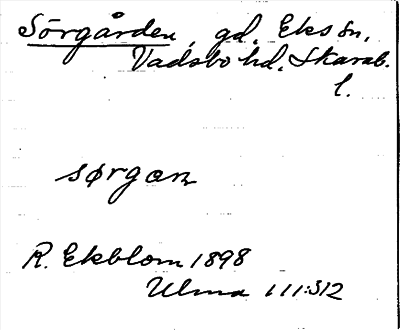 Sörgården, gd, Eks sn,
Vadsbo hd. Skarab.
l.
sørgan
R. Ekblom 1898
Ulma 111:312